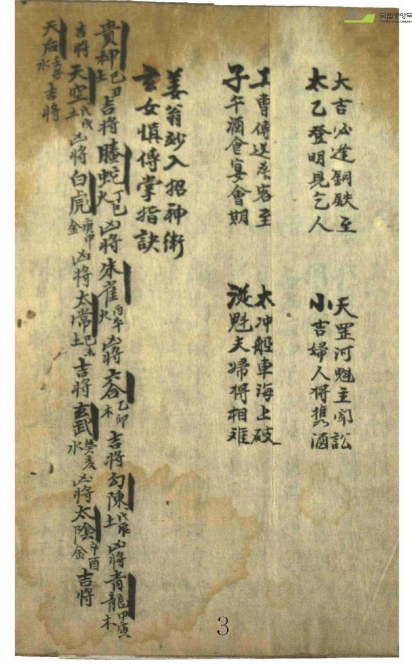 국립중앙도
大吉必逢銅鉄至　天罡河魁主闘訟
太乙登明見乞人　小吉婦人将携酒
工曹傳送来客至　太冲船車海上破
子午酒食宴會期　從魁夫婦将相难
姜翁妙入招神術
玄女慎傳掌指訣
貴神己丑土吉將螣蛇丁巳火凶將朱雀丙午火凶將六合乙卯木吉將勾陳戊辰土凶將青龍甲寅木
吉將天空戊戌土凶將白虎庚申金凶將太常己未土吉將玄武癸亥水凶將太陰辛酉金吉將
天后壬子水吉將
3